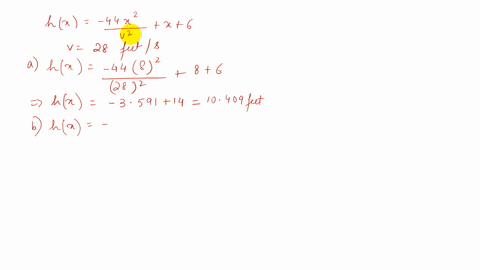 h(x) = -44x²/v² + x + 6
v = 28 feet/s
a) h(x) = -44(8)²/(28)² + 8 + 6
⇒ h(x) = -3.591 + 14 = 10.409 feet
b) h(x) = -